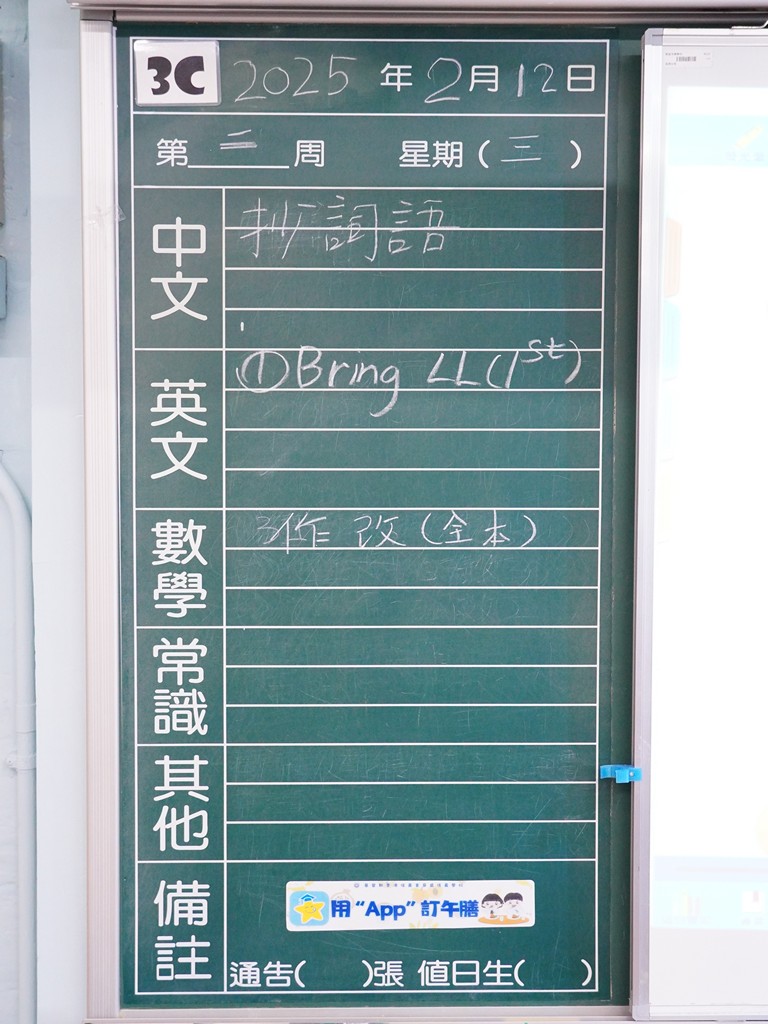 3C 2025 年 2 月 12 日
第 二 周 星期 ( 三 )
中文 抄詞語
英文 ① Bring LL (1st)
數學 作改 (全本)
常識
其他
備註
用 “App” 訂午膳
通告( )張 值日生( )